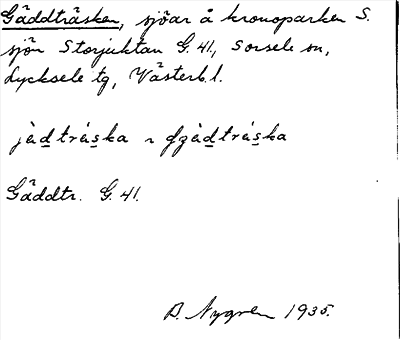 Gäddträsken, sjöar å kronoparken S.
sjön Storjuktan G. 41, Sorsele sn,
Lycksele tg, Västerb. l.
jèd̲trás̲ka ~ gèd̲trás̲ka
Gäddtr. G. 41.
B. Nygren 1935.